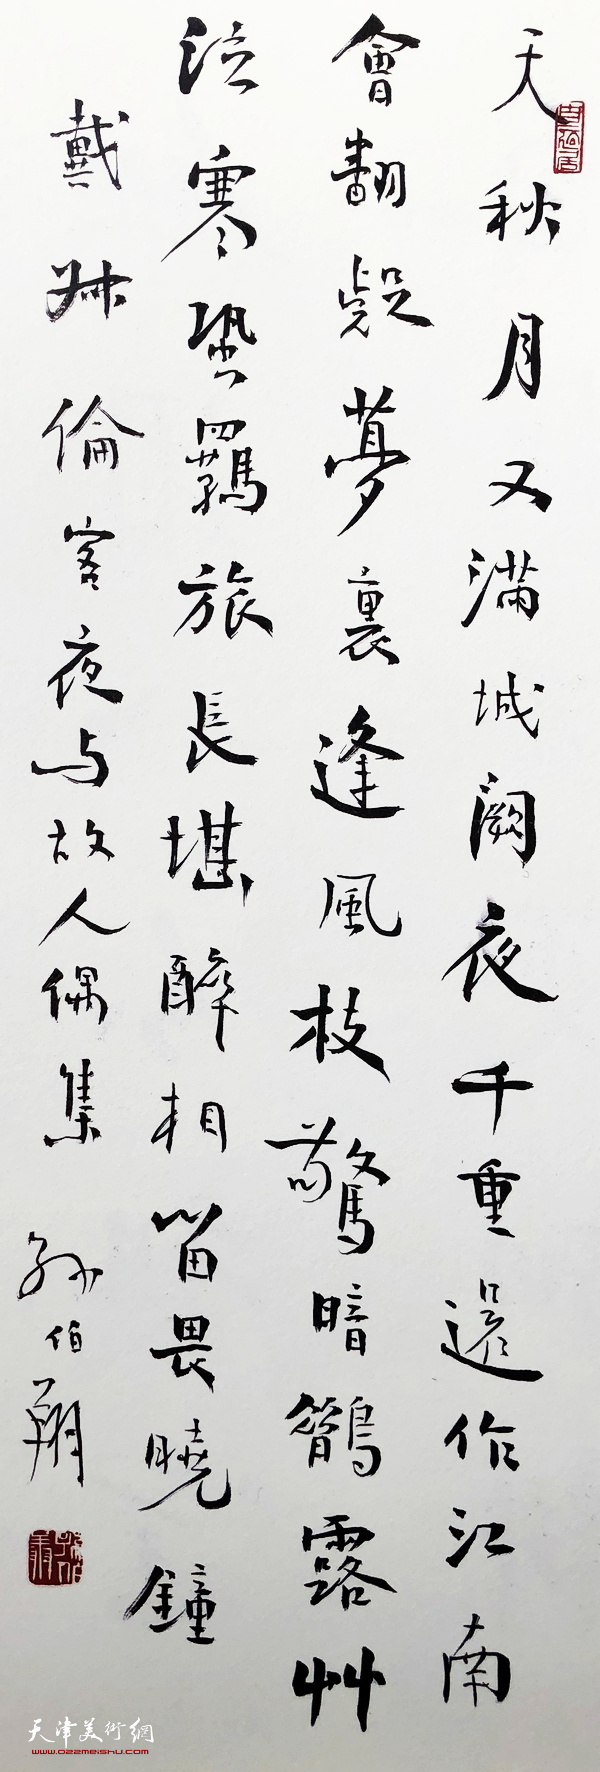 天秋月又滿城闕夜千重還作江南
會翻疑夢裏逢風枝驚暗鵲露艸
泣寒蛩羈旅長堪醉相留畏曉鐘
戴叔倫客夜与故人偶集
孫伯翔
天津美術網
www.022meishu.com